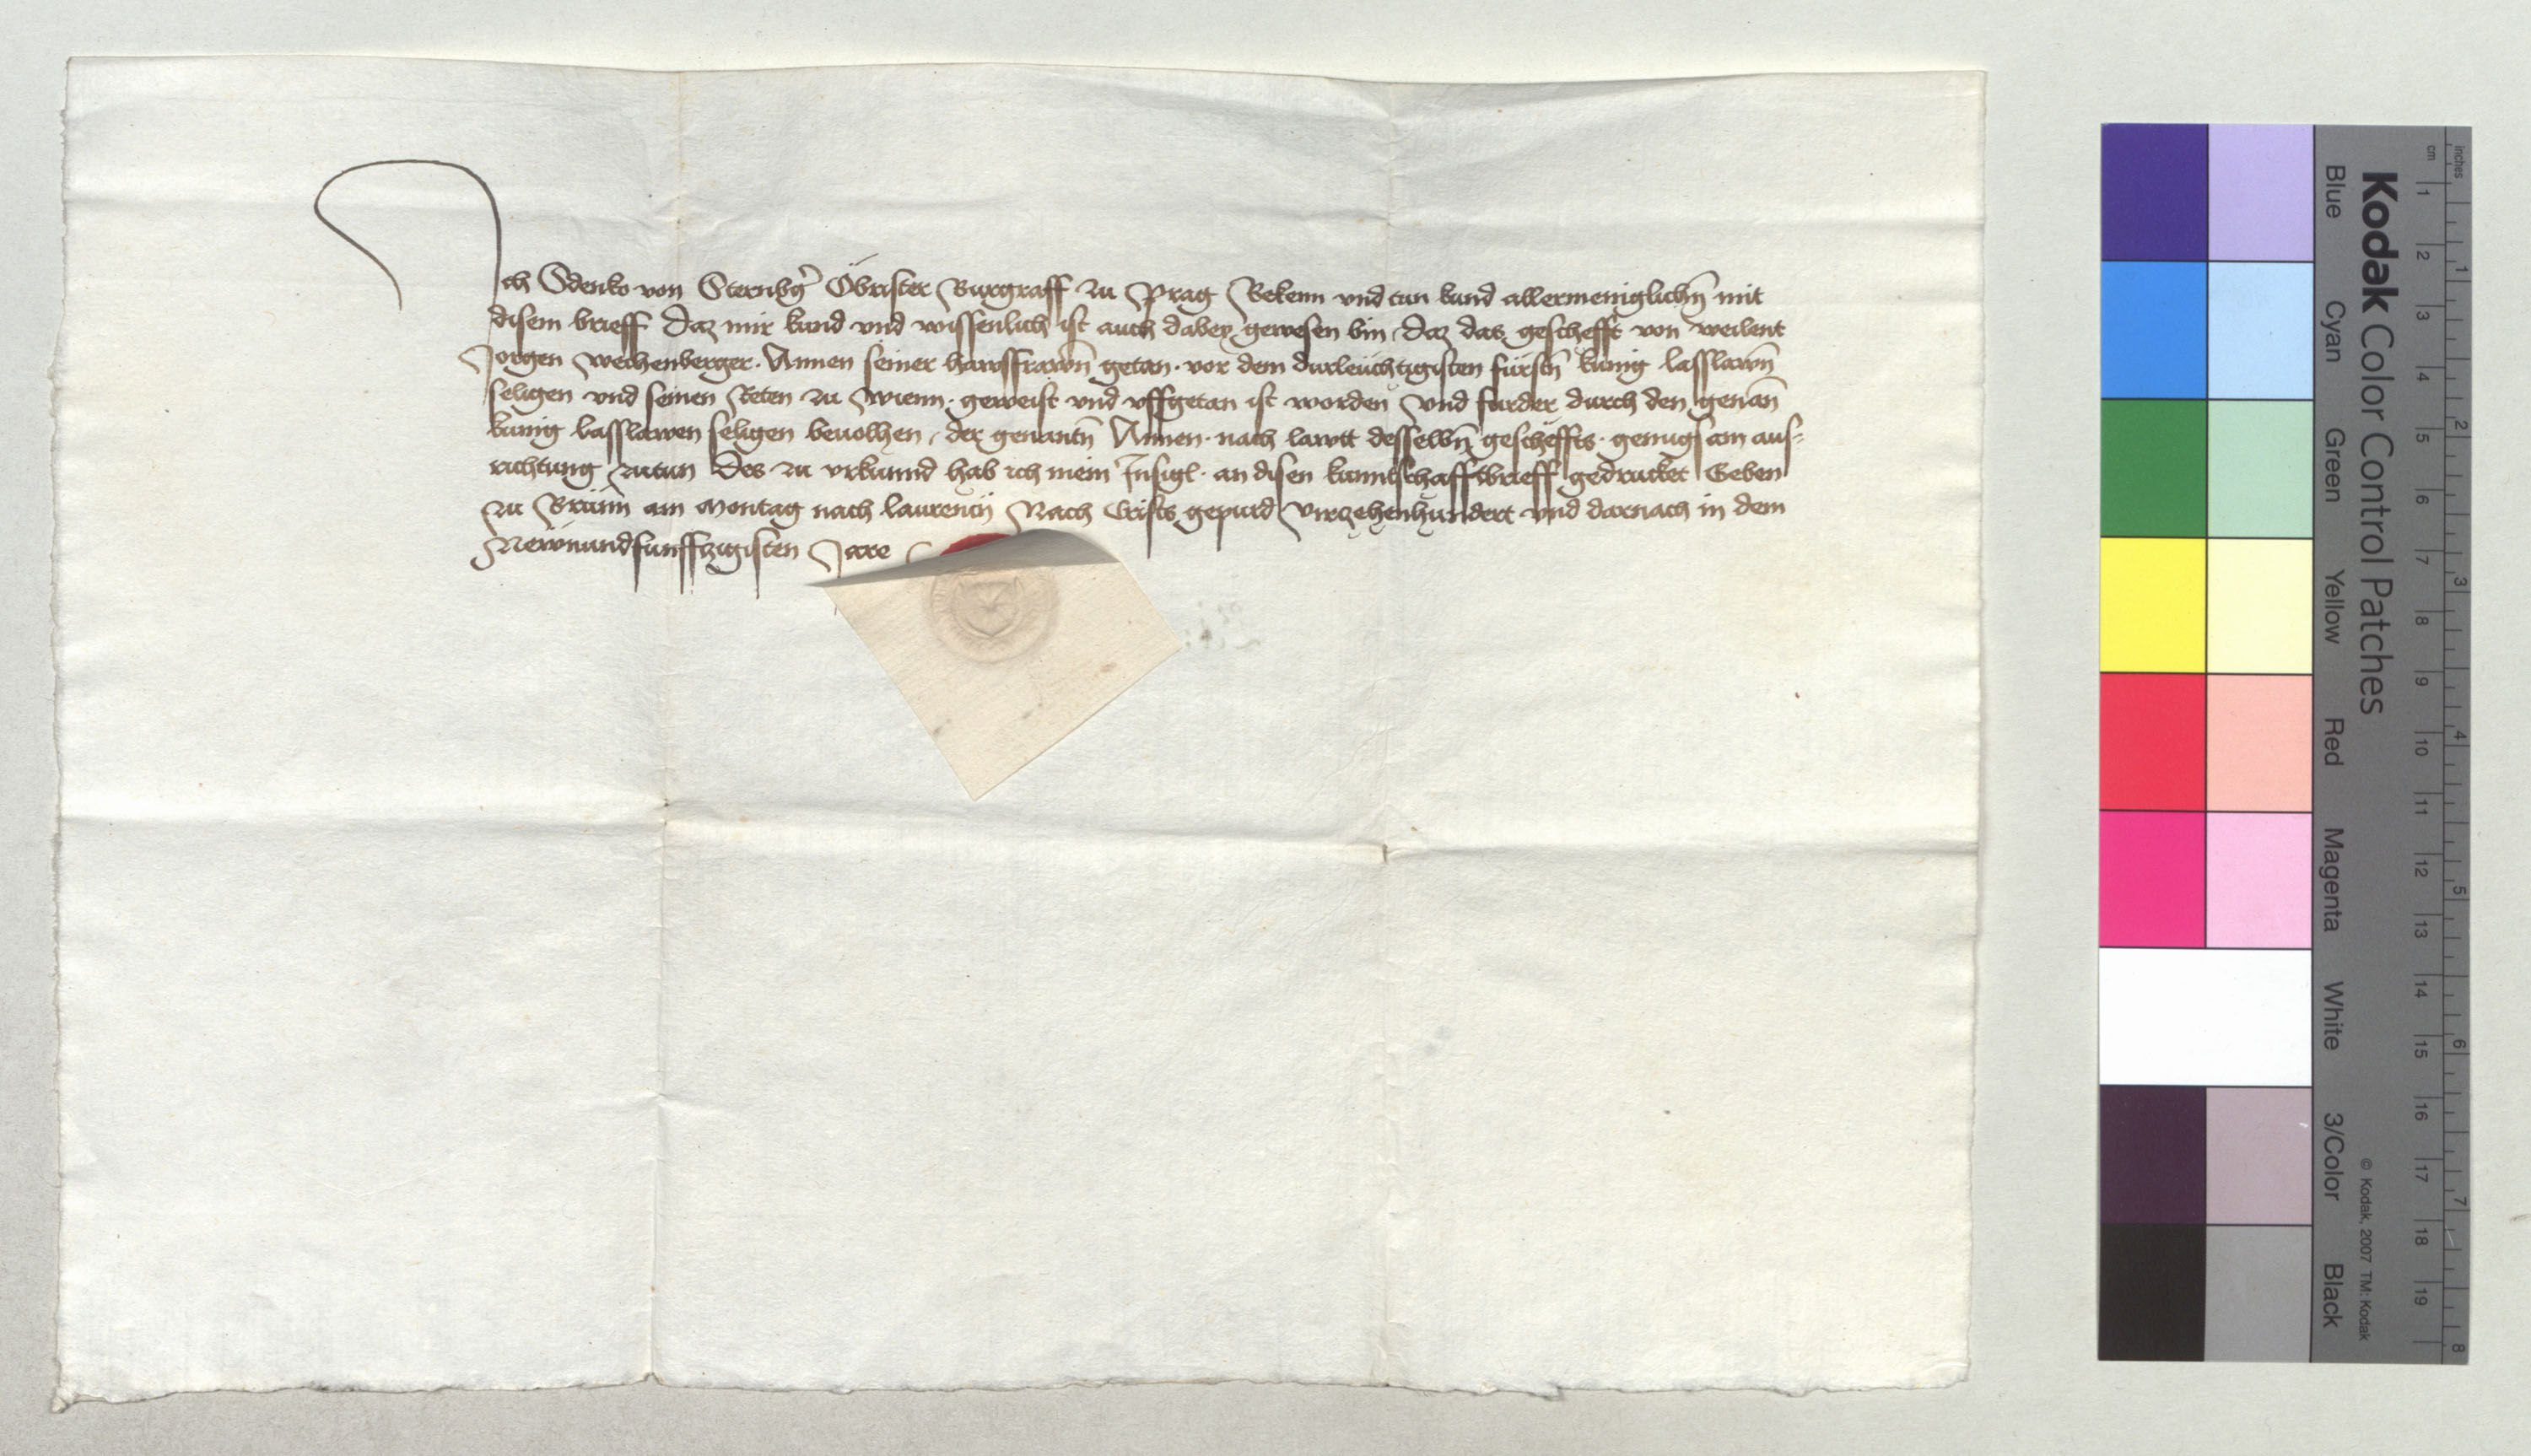 Ich Sdenko von Sternbg̃ Öbrister Burgraff zu Prag Bekenn vnd tun kund allermeniglichn̄ mit
disem brieff Daz mir kund vnd wissenlich ist auch dabey gewesen bin Daz das geschefft von weilent
Jorgen Wechenberger. Annen seiner hawsfrawn̄ getan. vor dem durleuchtigisten fürstn̄ kunig lasslawn̄
seligen vnd seinen Reten zu Wienn. geweist vnd vffgetan ist worden Vnd furder durch den genan̄
kunig lasslawen seligen beuolhen, der genantn̄ Annen. nach lawtt desselbn̄ gescheffts. genugsam aus-
richtung zutun Des zu vrkunnd hab ich mein Insigl. an disen kuntschafftbrieff gedrucket Geben
zu Brünn am Montag nach laurencij Nach Crists gepurd Virczehenhundert vnd darnach in dem
Newnundfunffczigisten Jare
Kodak Color Control Patches
Blue Cyan Green Yellow Red Magenta White 3/Color Black
© Kodak, 2007 TM: Kodak
cm 1 2 3 4 5 6 7 8 9 10 11 12 13 14 15 16 17 18 19
inches 1 2 3 4 5 6 7 8